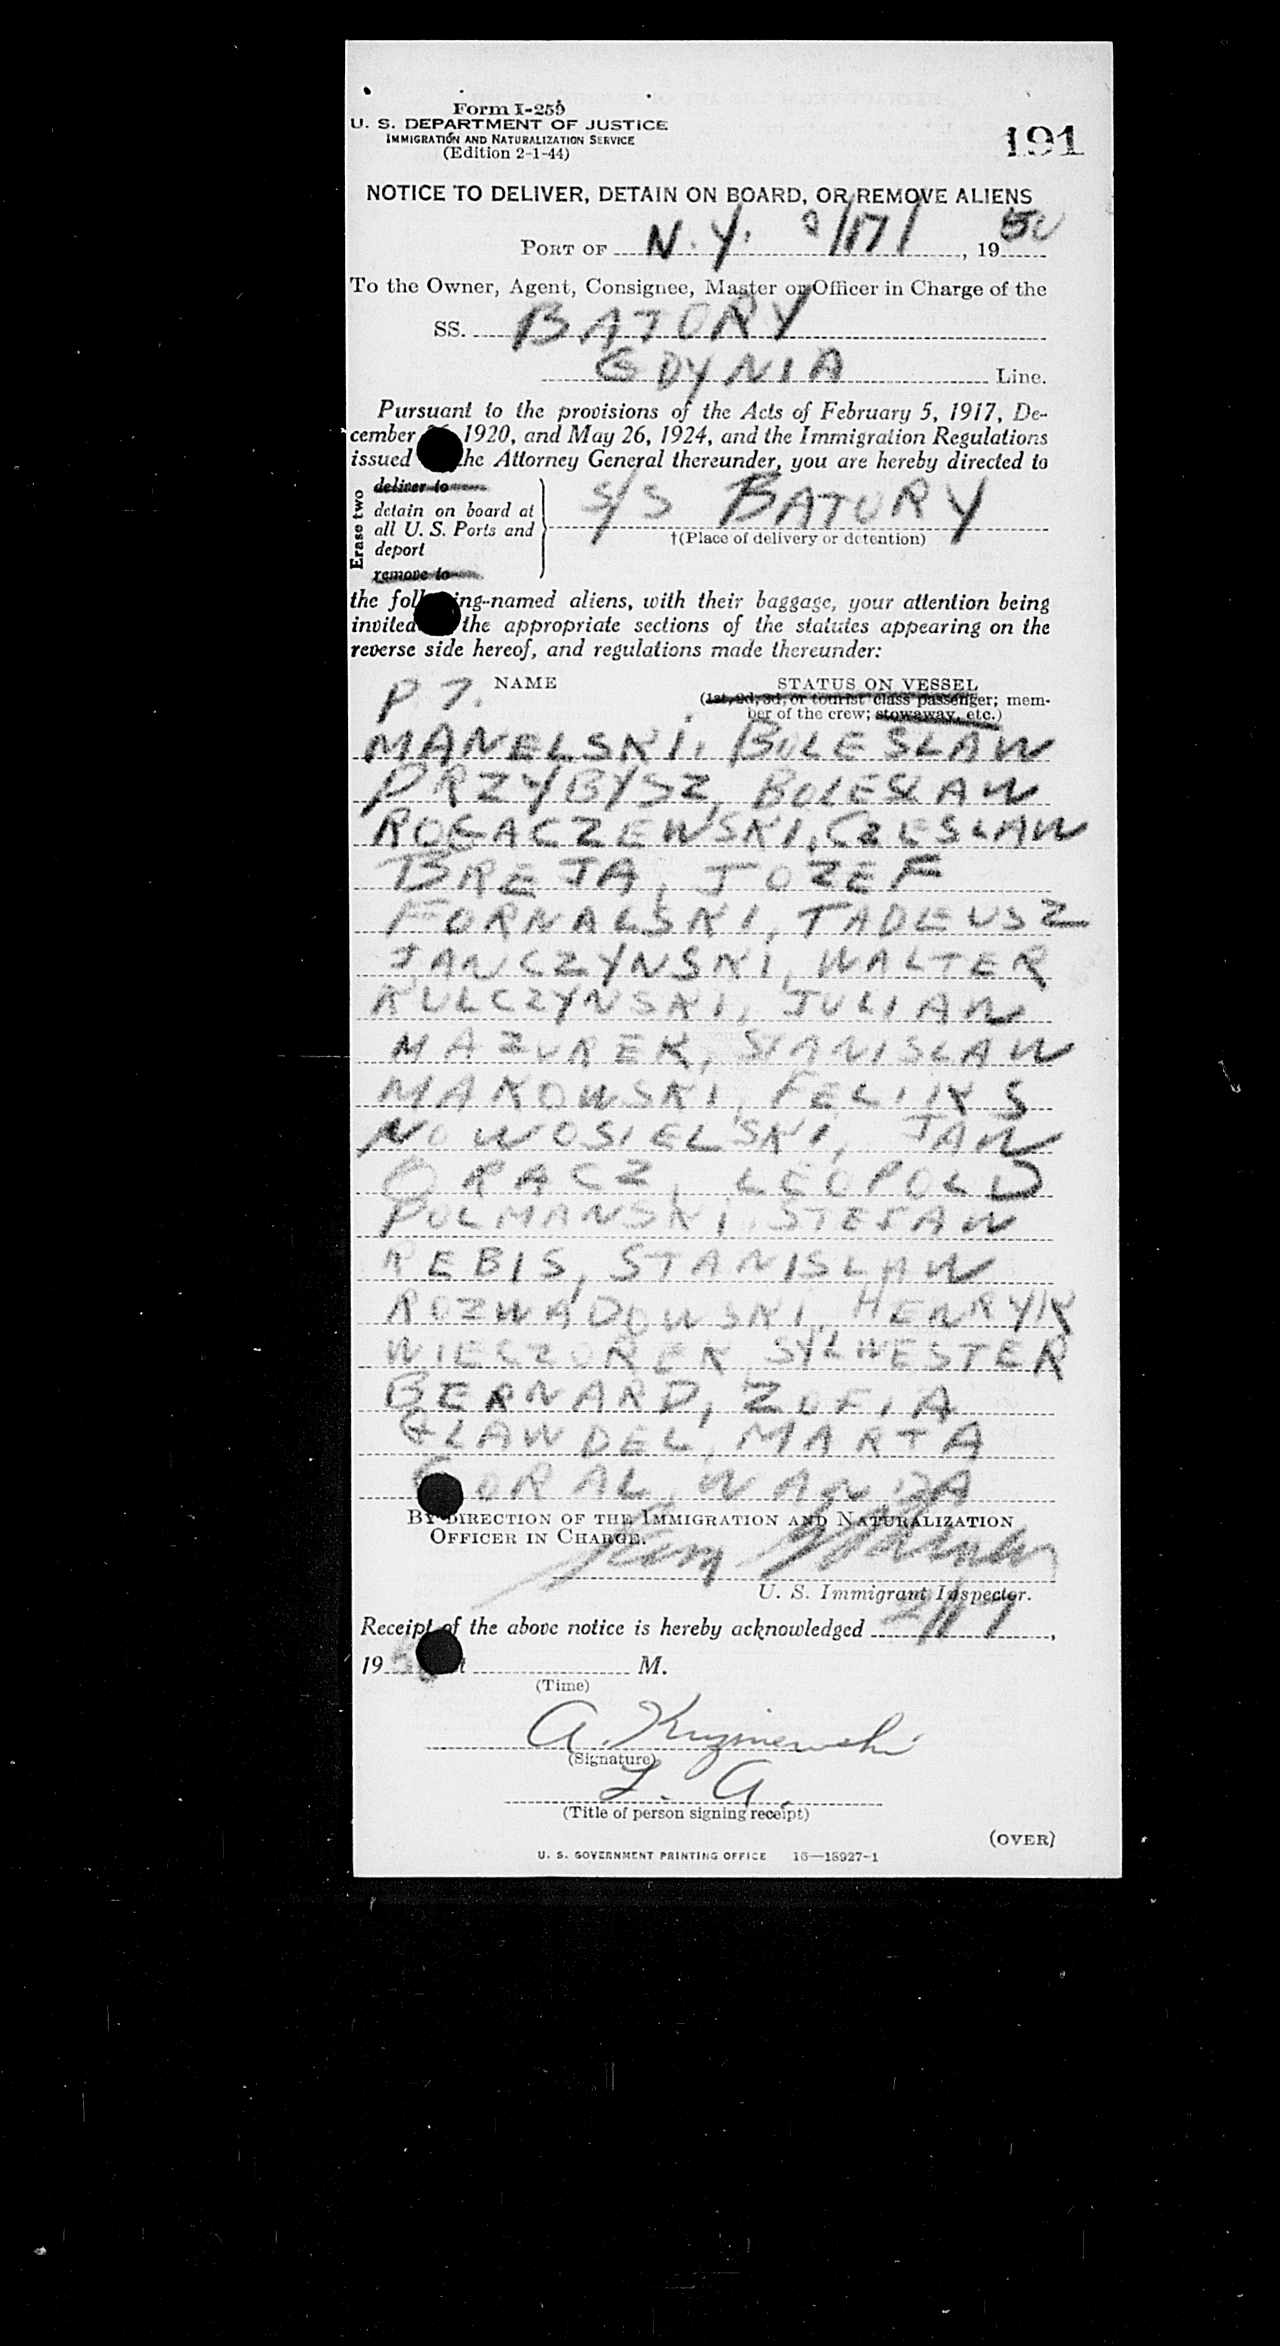 Form I-259
U. S. DEPARTMENT OF JUSTICE
IMMIGRATION AND NATURALIZATION SERVICE
(Edition 2-1-44)
191
NOTICE TO DELIVER, DETAIN ON BOARD, OR REMOVE ALIENS
PORT OF N.Y. /17/, 1950
To the Owner, Agent, Consignee, Master or Officer in Charge of the
SS. BATORY
GDYNIA Line.
Pursuant to the provisions of the Acts of February 5, 1917, De-
cember 1920, and May 26, 1924, and the Immigration Regulations
issued the Attorney General thereunder, you are hereby directed to
Erase two
deliver to
detain on board at
all U. S. Ports and
deport
remove to
S/S BATORY
†(Place of delivery or detention)
the following-named aliens, with their baggage, your attention being
invited the appropriate sections of the statutes appearing on the
reverse side hereof, and regulations made thereunder:
P 7. NAME
STATUS ON VESSEL
(1st, 2d, 3d, or tourist class passenger; mem-
ber of the crew; stowaway, etc.)
MANELSKI, BOLESLAW
PRZYBYSZ, BOLESLAW
ROGACZEWSKI, CZESLAW
BREJA, JOZEF
FORNALSKI, TADEUSZ
JANCZYNSKI, WALTER
KULCZYNSKI, JULIAN
MAZUREK, STANISLAW
MAKOWSKI, FELIKS
NOWOSIELSKI, JAN
ORACZ, LEOPOLD
POLMANSKI, STEFAN
REBIS, STANISLAW
ROZWADOWSKI, HENRYK
WIECZOREK, SYLWESTER
BERNARD, ZOFIA
GLAWDEL, MARTA
GORAL, WANDA
BY DIRECTION OF THE IMMIGRATION AND NATURALIZATION
OFFICER IN CHARGE.
U. S. Immigrant Inspector.
Receipt of the above notice is hereby acknowledged 2/17,
19 5 M.
(Time)
A. Kuzniewski
(Signature)
(Title of person signing receipt)
(OVER)
U. S. GOVERNMENT PRINTING OFFICE 16—18927-1